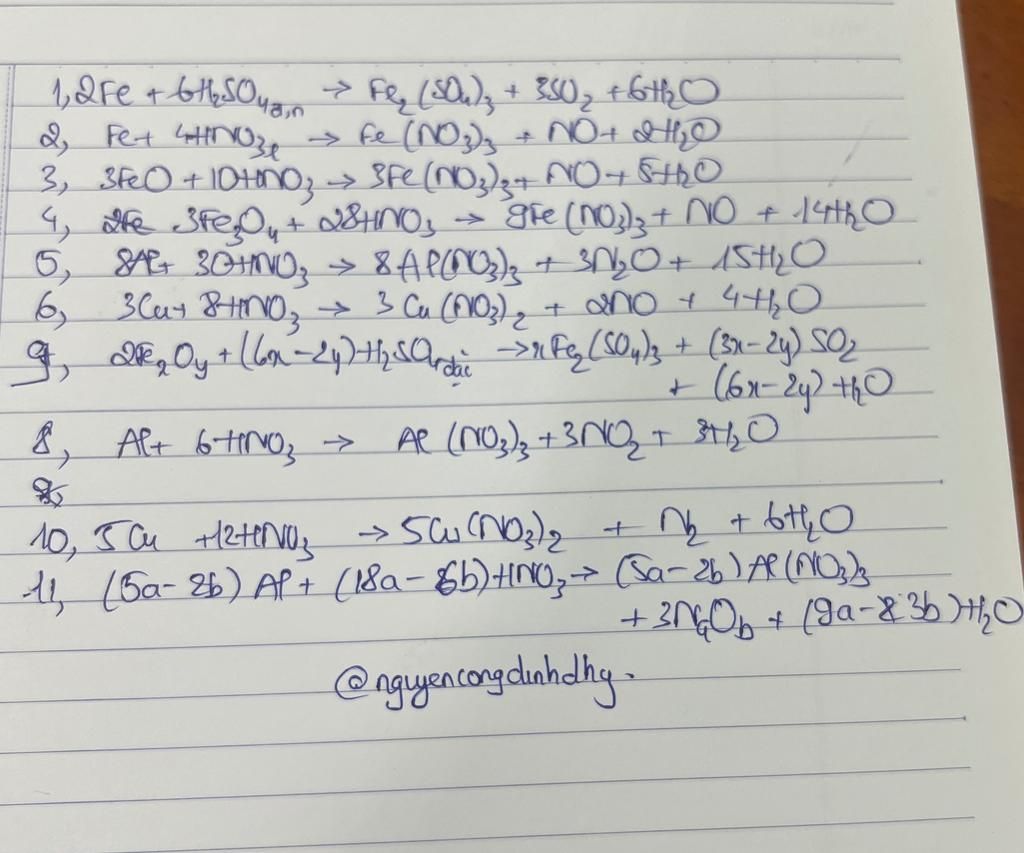 1, 2Fe + 6H₂SO₄đ,n → Fe₂(SO₄)₃ + 3SO₂ + 6H₂O
2, Fe + 4HNO₃l → Fe(NO₃)₃ + NO + 2H₂O
3, 3FeO + 10HNO₃ → 3Fe(NO₃)₃ + NO + 5H₂O
4, 3Fe₃O₄ + 28HNO₃ → 9Fe(NO₃)₃ + NO + 14H₂O
5, 8Al + 30HNO₃ → 8Al(NO₃)₃ + 3N₂O + 15H₂O
6, 3Cu + 8HNO₃ → 3Cu(NO₃)₂ + 2NO + 4H₂O
9, 2FeₓOy + (6x-2y)H₂SO₄đặc → xFe₂(SO₄)₃ + (3x-2y)SO₂
+ (6x-2y)H₂O
8, Al + 6HNO₃ → Al(NO₃)₃ + 3NO₂ + 3H₂O
10, 5Cu + 12HNO₃ → 5Cu(NO₃)₂ + N₂ + 6H₂O
11, (5a-2b)Al + (18a-6b)HNO₃ → (5a-2b)Al(NO₃)₃
+ 3NaOb + (9a-3b)H₂O
@nguyencongdinhdhy.